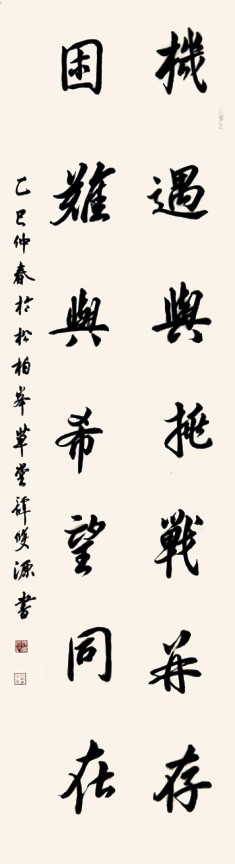 機遇與挑戰並存
困難與希望同在
乙巳仲春於松柏峯草堂譚雙源書